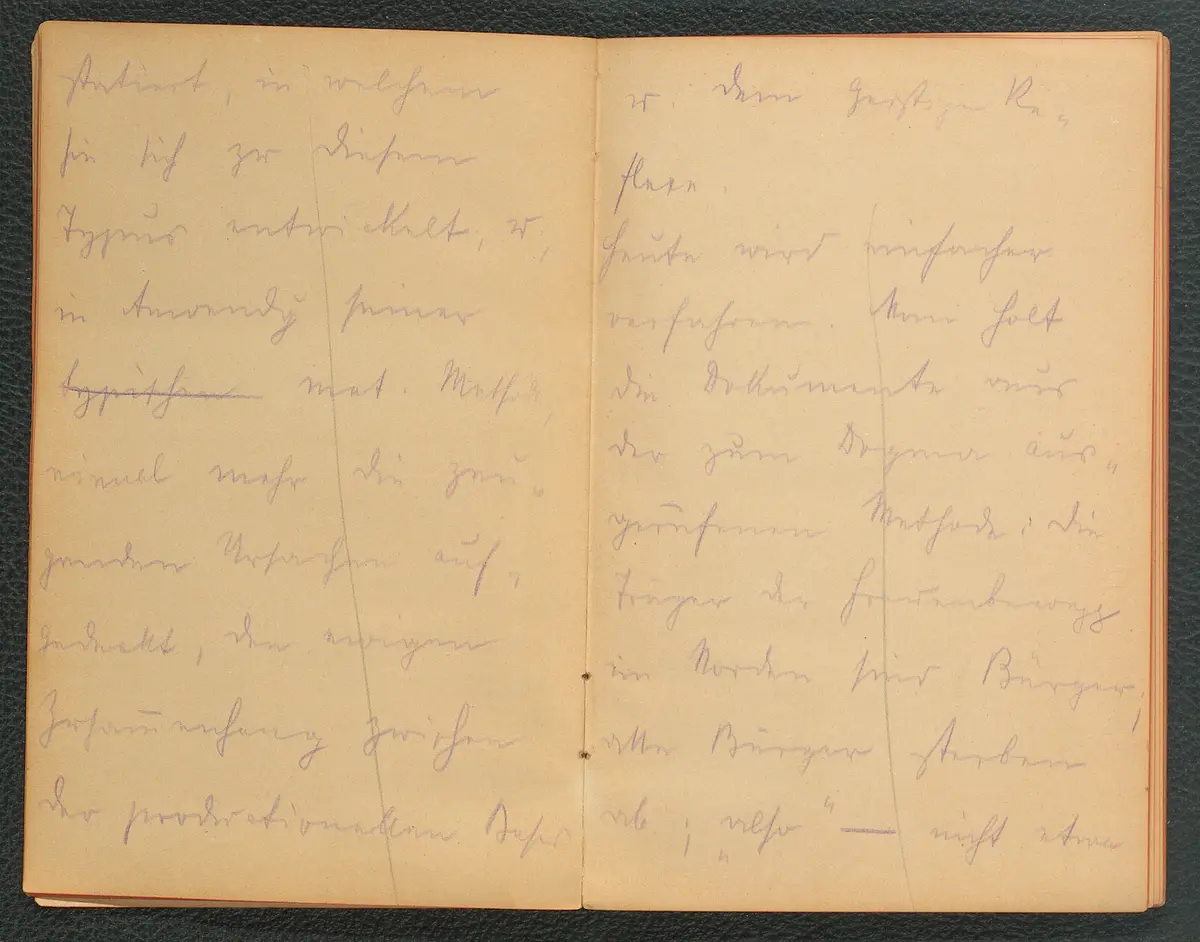 statiert, in welchem
sie sich zu diesem
Typus entwickelt, u.,
in Anwendg seiner
typischen mat. Methode,
einmal mehr die zeu„
genden Ursachen auf„
gedeckt, den ewigen
Zusam̄enhang zwischen
der productionellen Basis
u. dem geistigen Re„
flexe.
Heute wird einfacher
verfahren. Man holt
die Dokumente aus
der zum Dogma aus„
gerufenen Methode: die
Träger der Frauenbewegg
im Norden sind Bürger,
alle Bürger sterben
ab; „also“ — nicht etwa